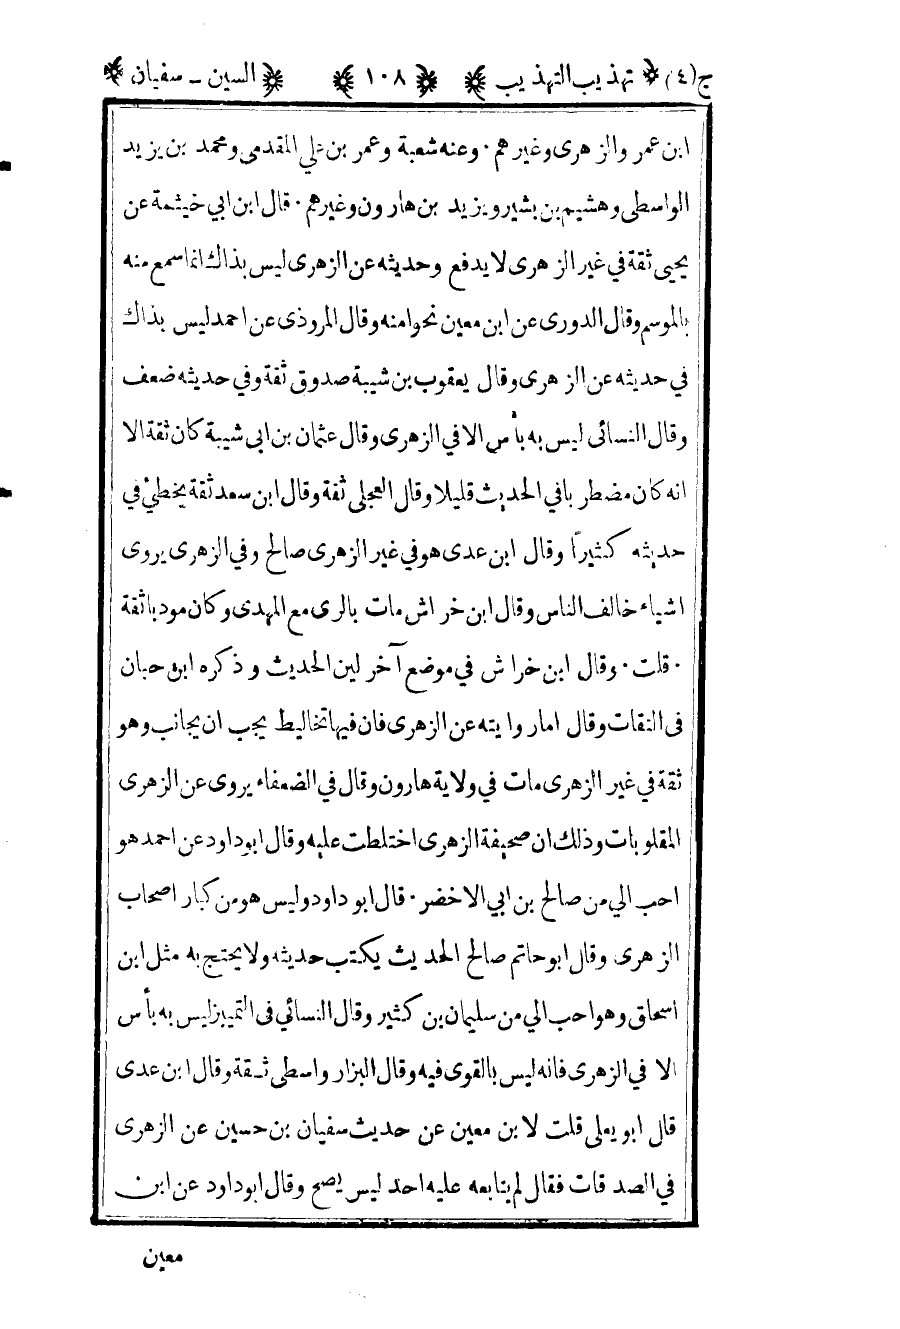 ج(٤) تهذيب التهذيب ١٠٨ السين ـ سفيان
ابن عمر والزهرى وغيرهم · وعنه شعبة وعمر بن علي المقدمى ومحمد بن يزيد
الواسطى وهشيم بن بشير ويزيد بن هارون وغيرهم · قال ابن ابي خيثمة عن
يحيى ثقة في غير الزهرى لا يدفع وحديثه عن الزهرى ليس بذاك انما سمع منه
بالموسم وقال الدورى عن ابن معين نحوا منه وقال المروذى عن احمد ليس بذاك
في حديثه عن الزهرى وقال يعقوب بن شيبة صدوق ثقة وفي حديثه ضعف
وقال النسائى ليس به بأس الا في الزهرى وقال عثمان بن ابى شيبة كان ثقة الا
انه كان مضطربا في الحديث قليلا وقال العجلى ثقة وقال ابن سعد ثقة يخطئ في
حديثه كثيرًا وقال ابن عدى هو في غير الزهرى صالح وفي الزهرى يروى
اشياء خالف الناس وقال ابن خراش مات بالرى مع المهدى وكان مودبا ثقة
· قلت · وقال ابن خراش في موضع آخر لين الحديث وذكره ابن حبان
فى الثقات وقال اما روايته عن الزهرى فان فيها تخاليط يجب ان يجانب وهو
ثقة في غير الزهرى مات في ولاية هارون وقال في الضعفاء يروى عن الزهرى
المقلوبات وذلك ان صحيفة الزهرى اختلطت عليه وقال ابو داود عن احمد هو
احب الي من صالح بن ابي الاخضر · قال ابو داود وليس هو من كبار اصحاب
الزهرى وقال ابو حاتم صالح الحديث يكتب حديثه ولا يحتج به مثل ابن
اسحاق وهو احب الي من سليمان بن كثير وقال النسائي فى التمييز ليس به بأس
الا في الزهرى فانه ليس بالقوى فيه وقال البزار واسطى ثقة وقال ابن عدى
قال ابو يعلى قلت لابن معين عن حديث سفيان بن حسين عن الزهرى
في الصدقات فقال لم يتابعه عليه احد ليس يصح وقال ابو داود عن ابن
معين